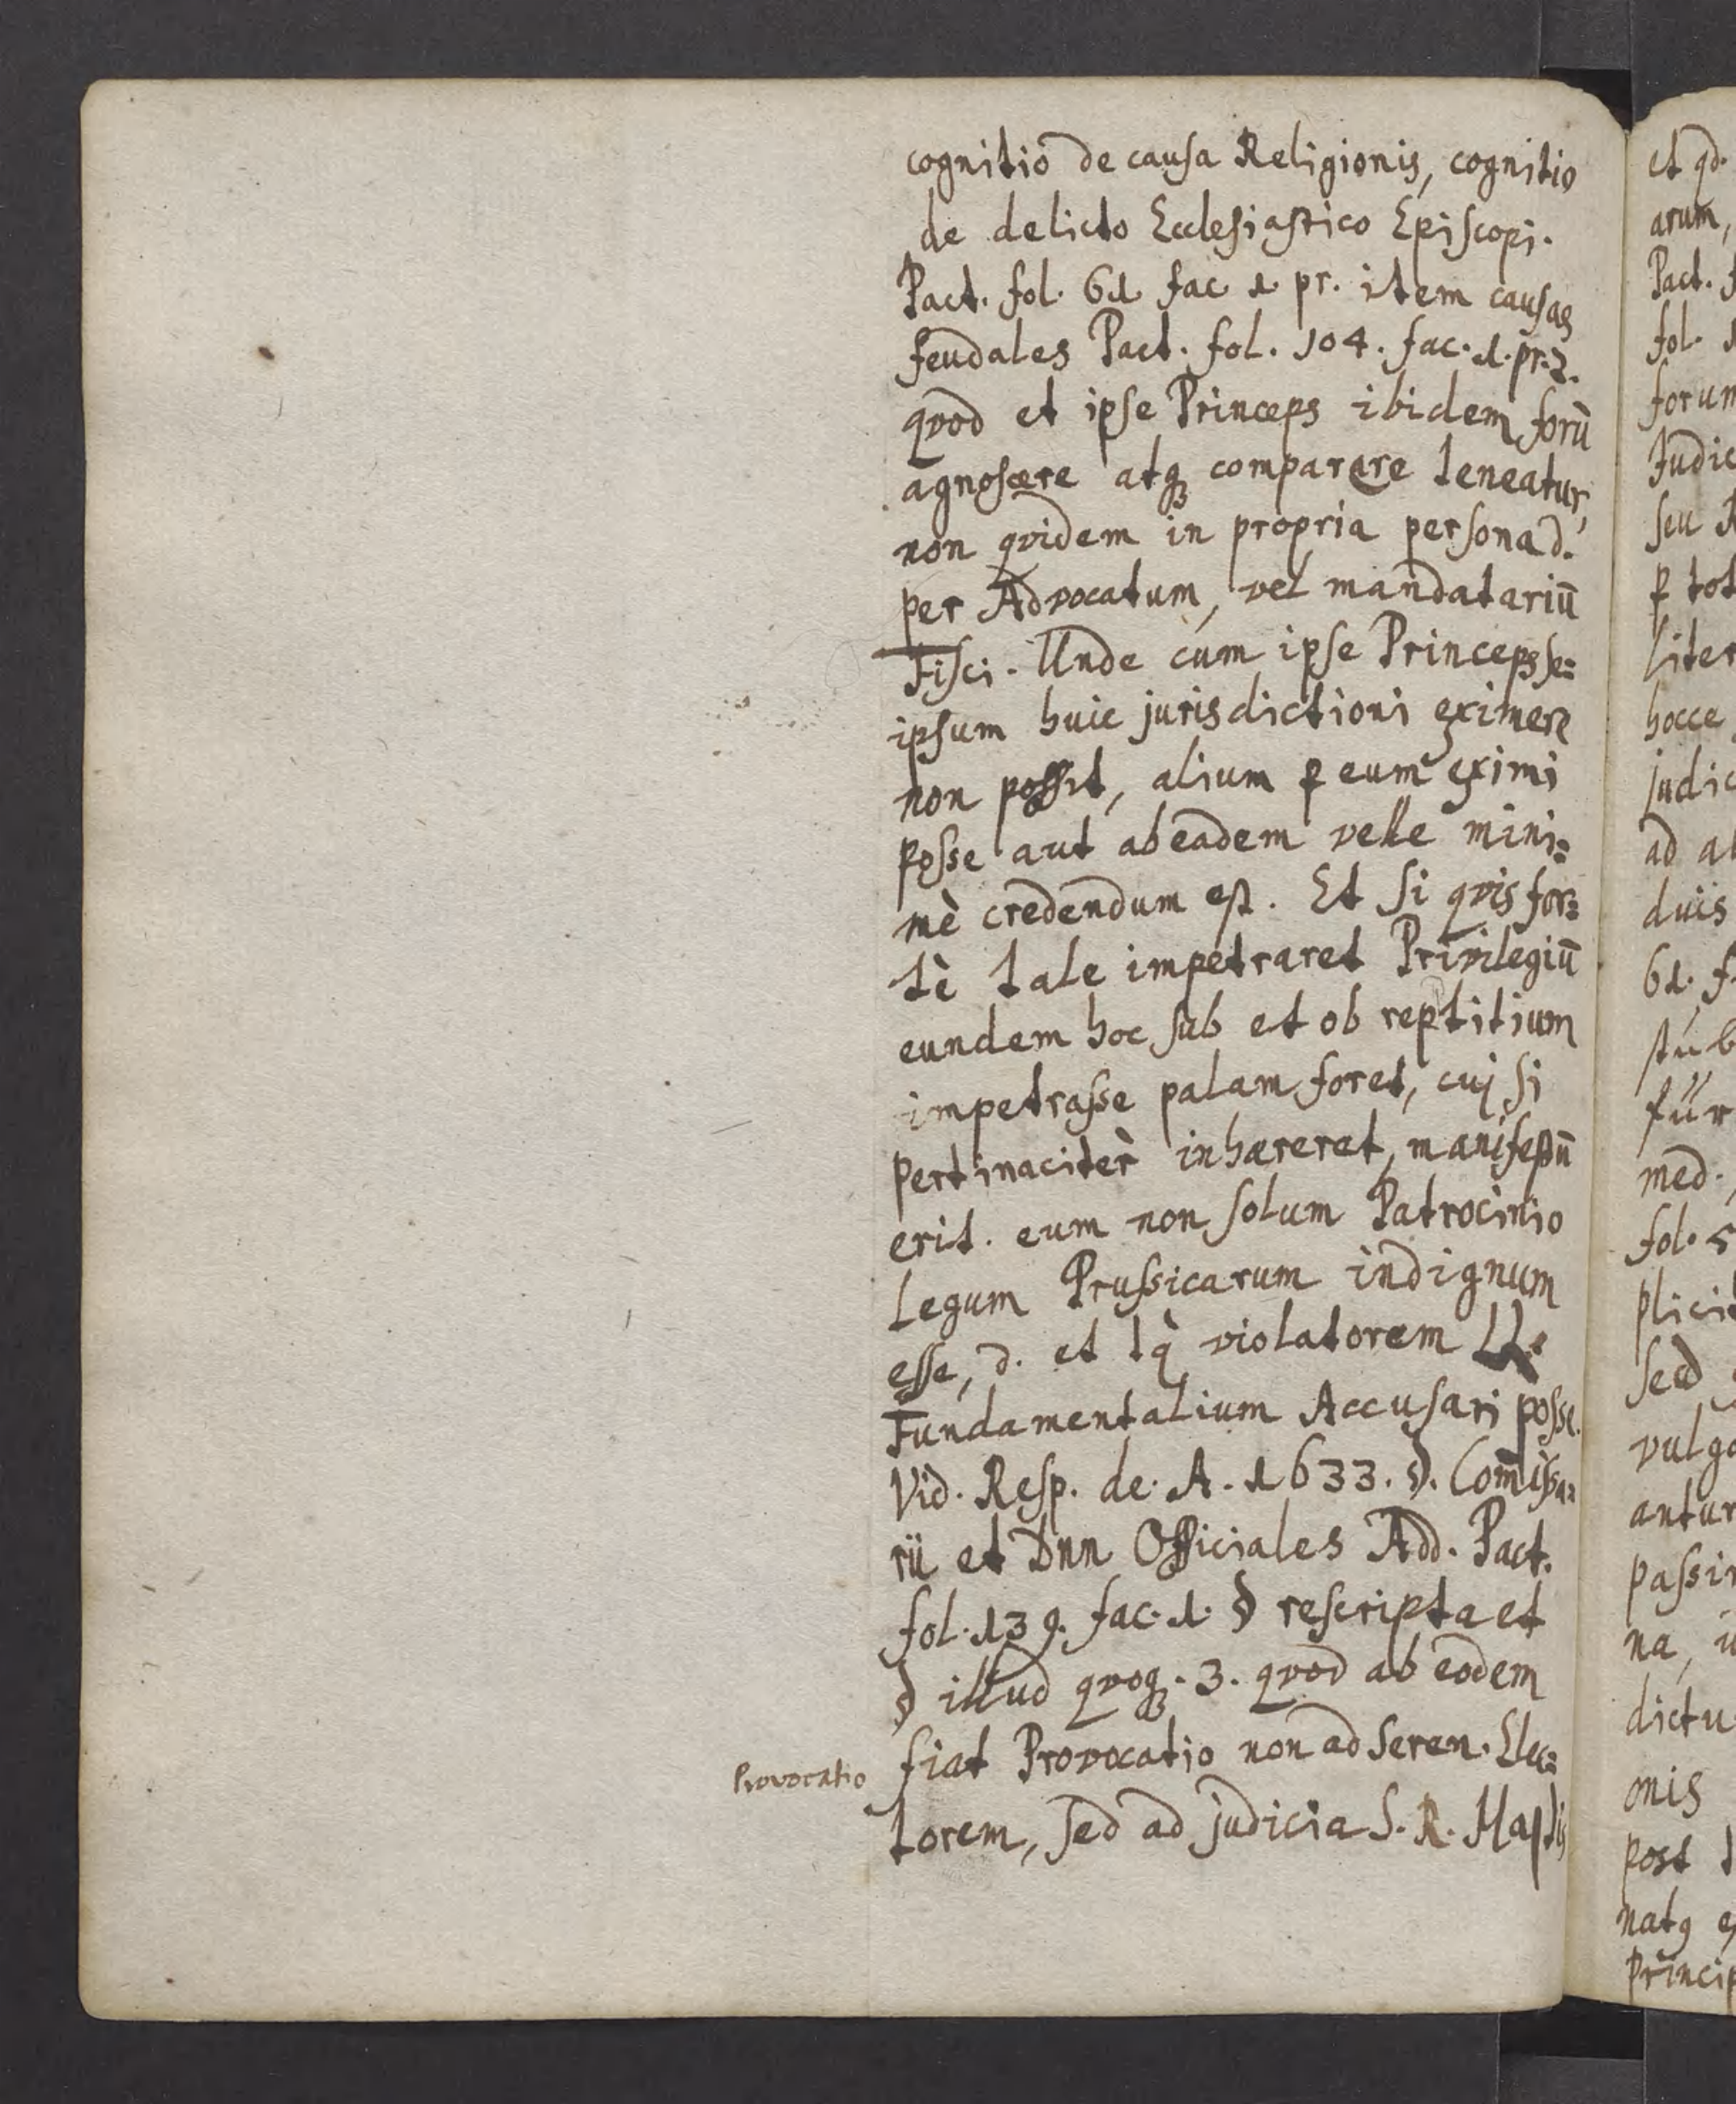 cognitio de causa Religionis, cognitio
de delicto Ecclesiastico Episcopi.
Pact. fol. 61 fac 1 pr. item causas
feudales Pact. fol. 104. fac. 1. pr. 2.
qvod et ipse Princeps ibidem forū
agnoscere atq₃ comparere teneatur,
non qvidem in propria persona d.
per Advocatum, vel mandatariū
Fisci. Unde cum ipse Princeps se=
ipsum huic jurisdictioni eximere
non possit, alium ꝑ eum eximi
posse aut ab eadem velle mini=
mè credendum est. Et si qvis for=
tè tale impetraret Privilegiū
eundem hoc sub et ob reptitium
impetrasse palam foret, cuj si
pertinaciter̀ inhæreret, manifestū
erit. eum non solum Patrocinio
Legum Prussicarum indignum
esse, d. et tq̀ violatorem LL.
Fundamentalium Accusari posse.
Vid. Resp. de. A. 1633. §. Com̄issa=
rii et Dnn Officiales Add. Pact.
fol. 139. fac. 1. § rescripta et
§ illud qvoq₃. 3. qvod ab eodem
fiat Provocatio non ad Seren. Elec=
Provocatio
torem, sed ad judicia S. R. Majtis
et qd.
arum,
Pact.
fol.
forum
Judic
seu
ꝑ tot
liter
hocce
judic
ad al
duis
61. f
stub
für
med.
fol. 5
plicit
sed
vulgo
antur
passi
na,
dictu
onis
post
natq
Princip